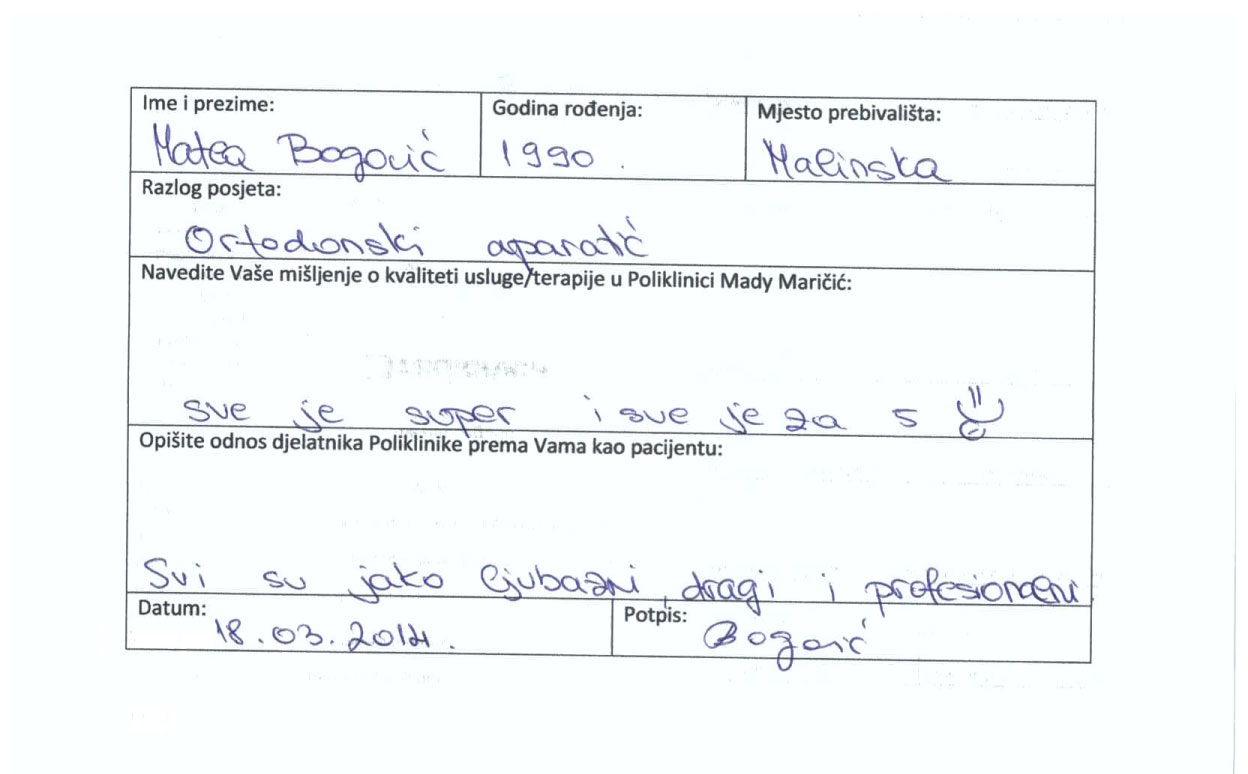 Ime i prezime: Godina rođenja: Mjesto prebivališta:
Matea Bogović 1990. Malinska
Razlog posjeta:
Ortodonski aparatić
Navedite Vaše mišljenje o kvaliteti usluge/terapije u Poliklinici Mady Maričić:
sve je super i sve je za 5
Opišite odnos djelatnika Poliklinike prema Vama kao pacijentu:
Svi su jako ljubazni, dragi i profesionalni.
Datum: Potpis:
18.03.2014. Bogović